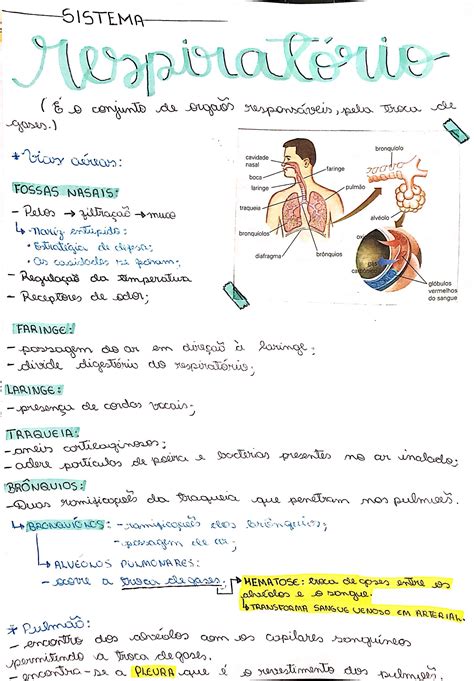 SISTEMA
respiratório
(É o conjunto de orgãos responsáveis, pela troca de
gases.)
* Vias aéreas:
FOSSAS NASAIS:
- Pelos → filtração → muco
↳ Nariz entupido:
• Estratégia de defesa;
• As cavidades se
- Regulação da temperatura
- Receptores de odor;
cavidade
nasal
boca
faringe
laringe
traqueia
pulmão
bronquíolos
diafragma
brônquios
bronquíolo
alvéolo
gás
carbônico
glóbulos
vermelhos
do sangue
FARINGE:
- passagem do ar em direção à laringe;
- divide digestório do respiratório;
LARINGE:
- presença de cordas vocais;
TRAQUEIA:
- aneis cartilaginosos;
- adere partículas de poeira e bactérias presentes no ar inalado;
BRÔNQUIOS:
- Duas ramificações da traqueia que penetram nos pulmões.
↳ BRONQUÍOLOS: - ramificações dos brônquios;
- passagem de ar;
↳ ALVÉOLOS PULMONARES:
- ocorre a troca de gases; → HEMATOSE: troca de gases entre os
alvéolos e o sangue.
↳ TRANSFORMA SANGUE VENOSO EM ARTERIAL.
* Pulmão:
- encontro dos alvéolos com os capilares sanguíneos
permitindo a troca de gases.
- encontra-se a PLEURA que é o revestimento dos pulmões.